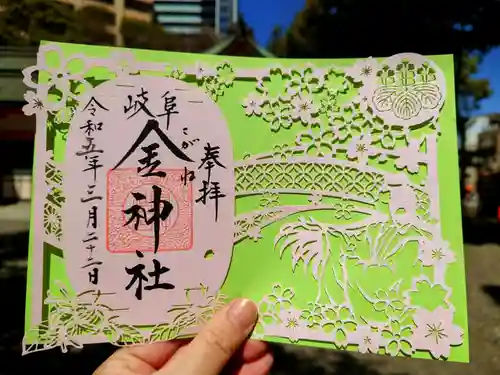 奉拝
岐阜
こがね
金神社
令和五年三月二十二日